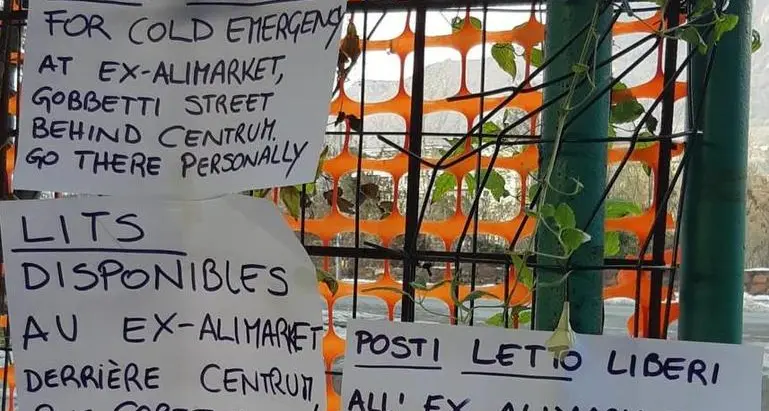 FOR COLD EMERGENCY
AT EX-ALIMARKET,
GOBBETTI STREET
BEHIND CENTRUM.
GO THERE PERSONALLY
LITS
DISPONIBLES
AU EX-ALIMARKET
DERRIÈRE CENTRUM,
POSTI LETTO LIBERI
ALL' EX